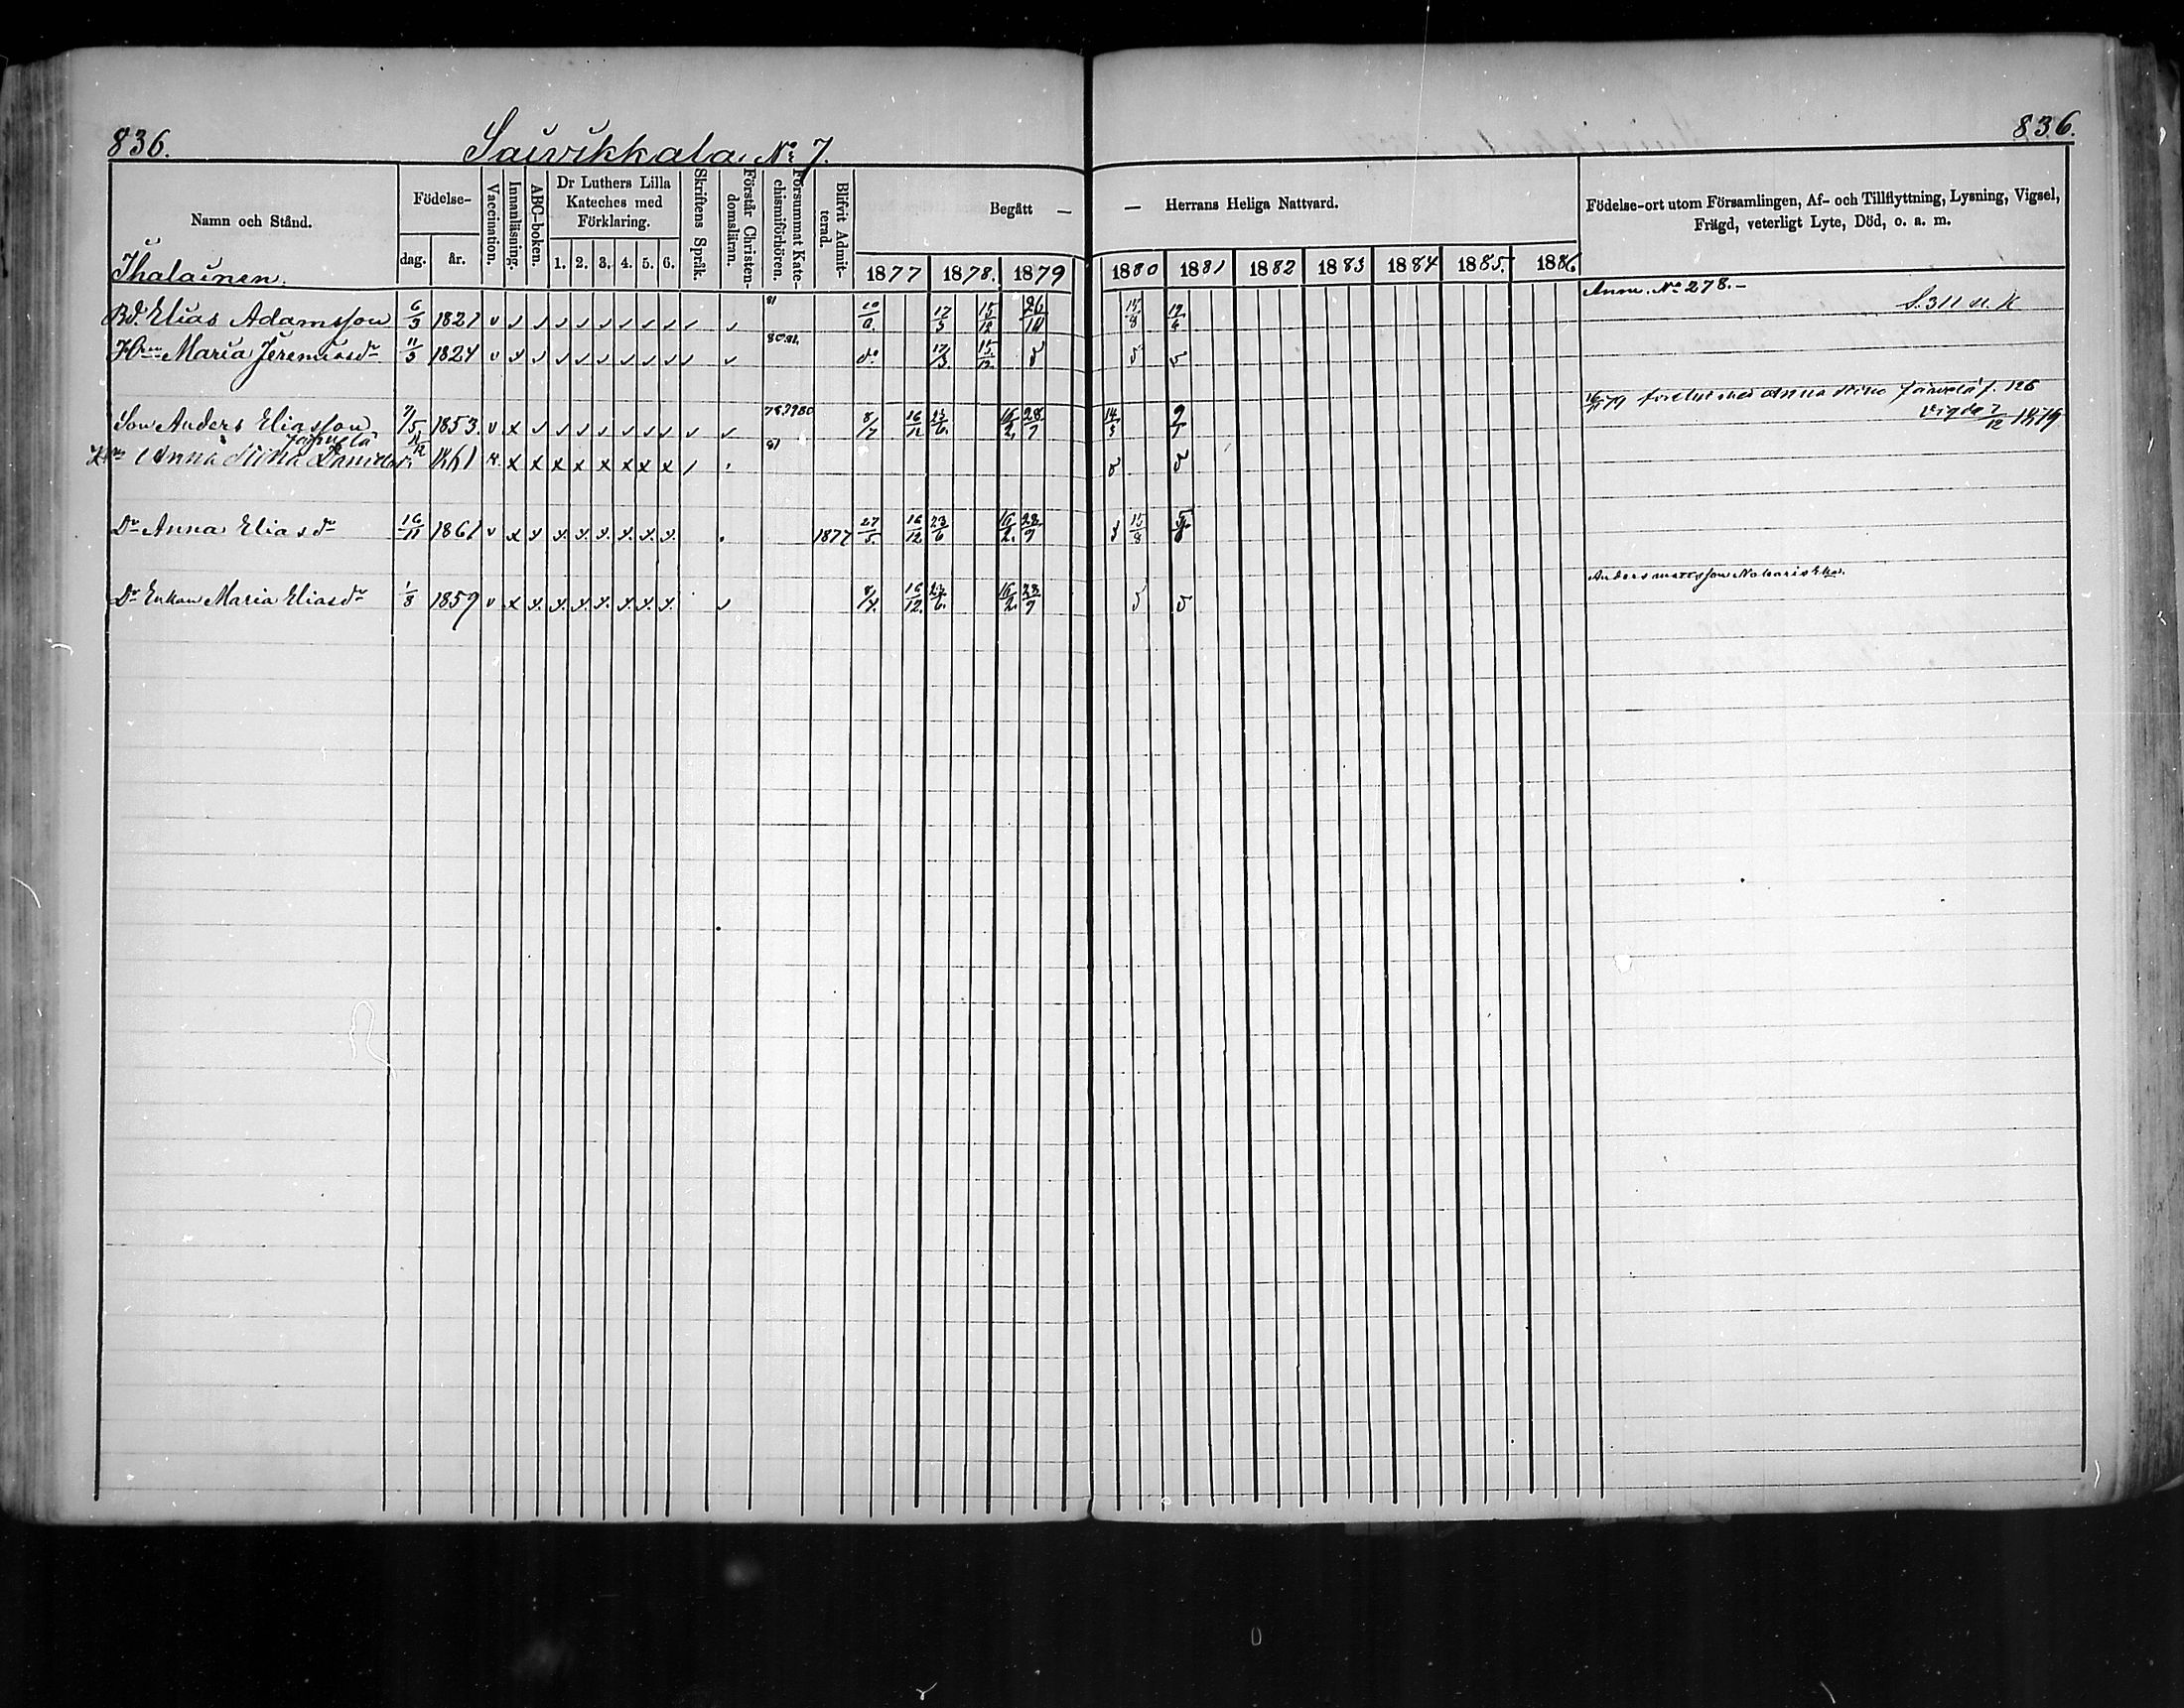 836. Saivikkala № 7. 836.
Namn och Stånd. Födelse- dag. år. Vaccination. Innanläsning. ABC-boken. Dr Luthers Lilla Kateches med Förklaring. 1. 2. 3. 4. 5. 6. Skriftens Språk. Förstår Christendomsläran. Försummat Katechismiförhören. Blifvit Admitterad. Begått — — Herrans Heliga Nattvard. Födelse-ort utom Församlingen, Af- och Tillflyttning, Lysning, Vigsel, Frägd, veterligt Lyte, Död, o. a. m.
1877 1878. 1879 1880 1881 1882 1883 1884 1885. 1886
Ihalainen.
Anm. № 278.-
Bd. Elias Adamsson 6/3 1821 v 81 17/3 15/12 26/10 15/8 S. 311 n. k
Hn Maria Jeremiasdr 11/3 1824 v 80.81. do 17/3 15/12
Son Anders Eliasson 7/5 1853. v x 78 79 80 8/7 16/12 23/6 16/2. 28/9 14/3 9/7 79 Anna Stina 126
vigde 7/12 1879
Anna Stina 1861 x x x x x x x x 81
Dr Anna Eliasdr 16/11 1861 v x 1877 27/5. 16/12 23/6 16/2. 28/9 15/8
Dr Enkan Maria Eliasdr 1/8 1859 v x 8/7. 16/12. 23/6. 16/2. 28/9 Anders